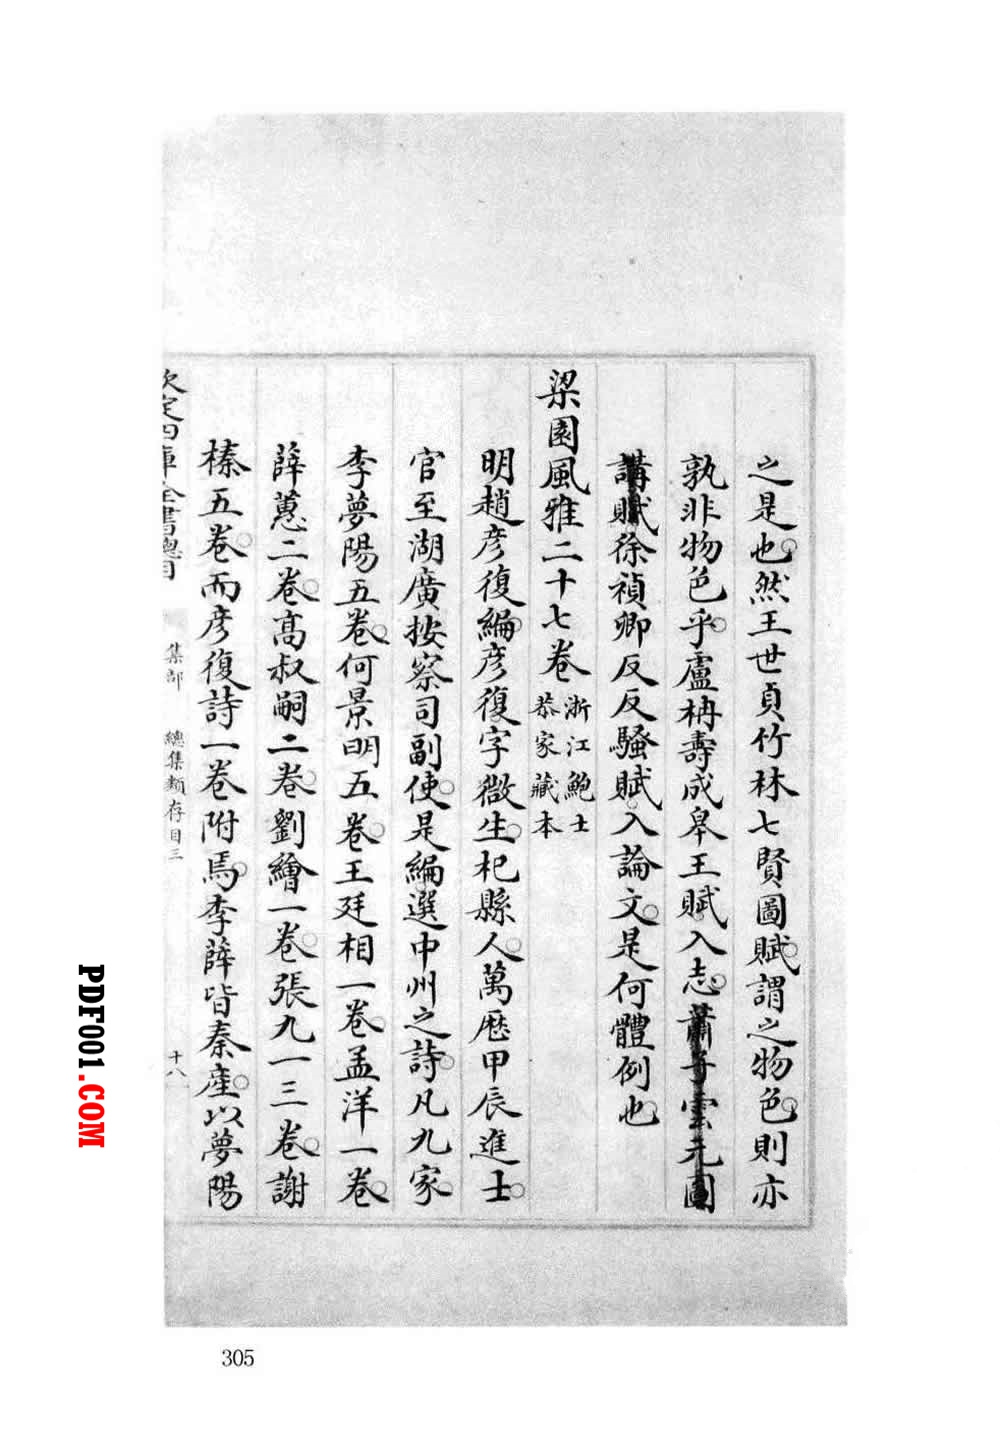 之是也然王世貞竹林七賢圖賦謂之物色則亦
孰非物色乎盧柟壽成臯王賦入志蕭子雲元圃
講賦徐禎卿反反騷賦入論文是何體例也
梁園風雅二十七卷
浙江鮑士
恭家藏本
明趙彥復編彥復字微生杞縣人萬厯甲辰進士
官至湖廣按察司副使是編選中州之詩凡九家
李夢陽五卷何景明五卷王廷相一卷孟洋一卷
薛蕙二卷高叔嗣二卷劉繪一卷張九一三卷謝
榛五卷而彥復詩一卷附焉李薛皆秦産以夢陽
欽定四庫全書總目
集部
總集類存目三
十八
PDF001.COM
305